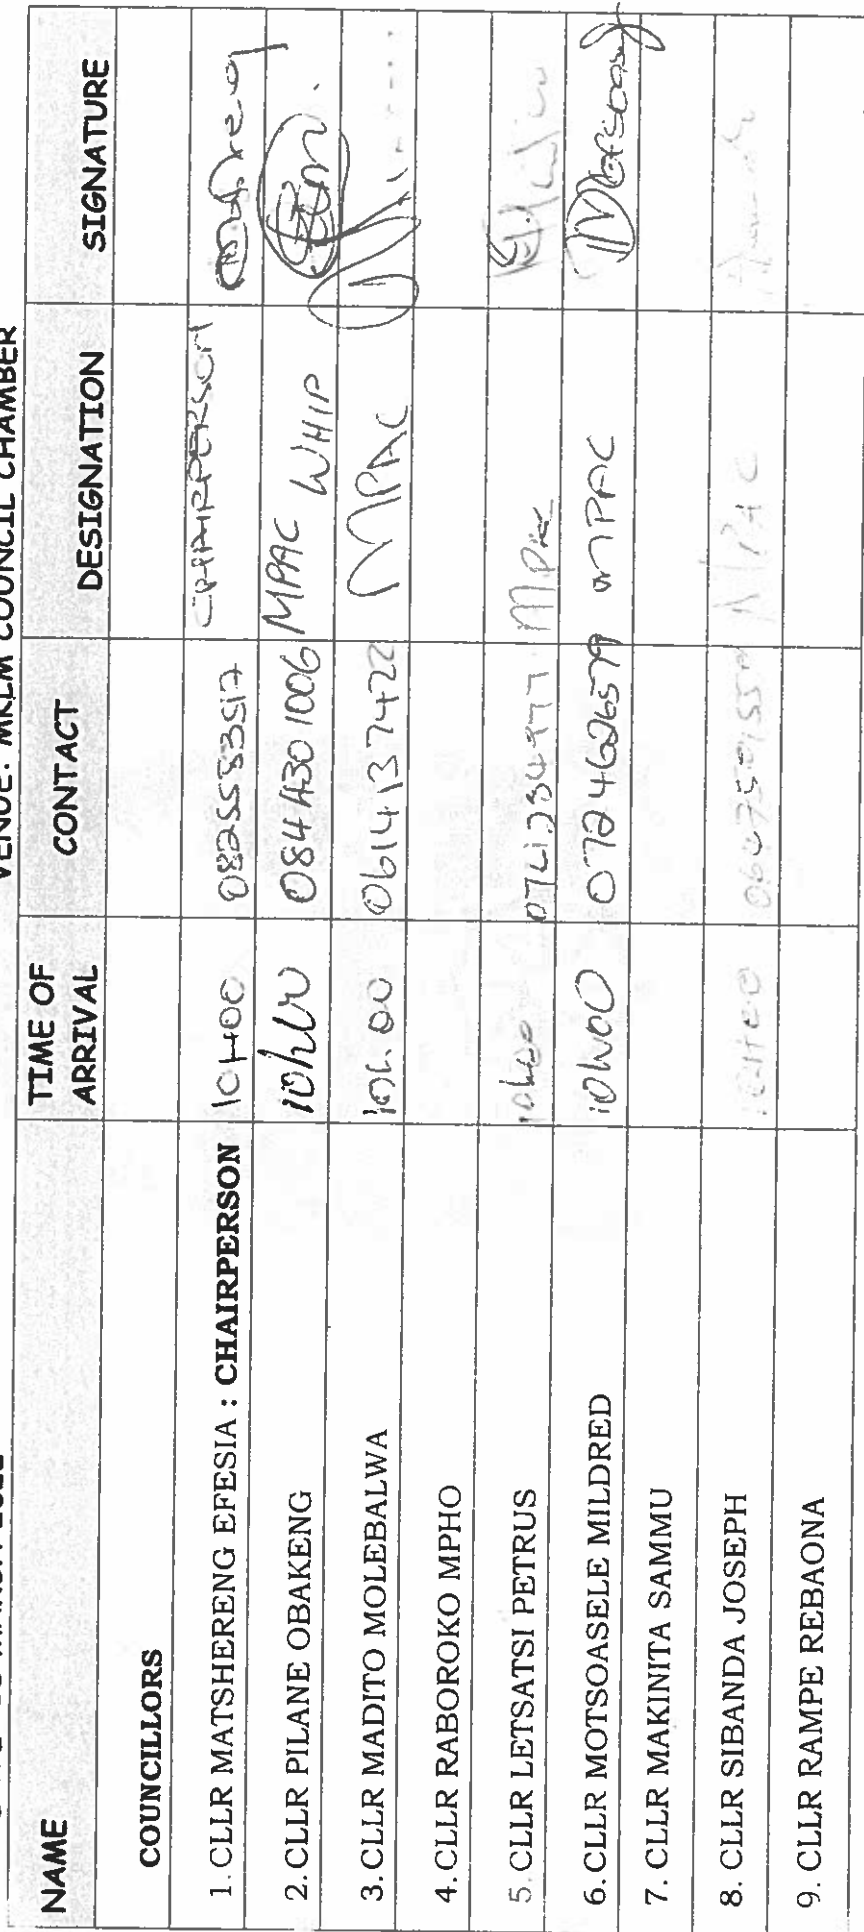 VENUE: MKLM COUNCIL CHAMBER
NAME TIME OF ARRIVAL CONTACT DESIGNATION SIGNATURE
COUNCILLORS
1. CLLR MATSHERENG EFESIA : CHAIRPERSON 10H00 0825583517 CHAIRPERSON
2. CLLR PILANE OBAKENG 10h00 0844301006 MPAC WHIP
3. CLLR MADITO MOLEBALWA 10h.00 0614137422 MPAC
4. CLLR RABOROKO MPHO
5. CLLR LETSATSI PETRUS 10h00 MPAC
6. CLLR MOTSOASELE MILDRED 10h00 0724626579 MPAC
7. CLLR MAKINITA SAMMU
8. CLLR SIBANDA JOSEPH MPAC
9. CLLR RAMPE REBAONA